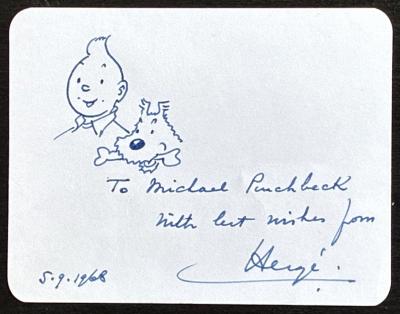 To Michael Pinchbeck
with best wishes from
Hergé.
5.9.1968